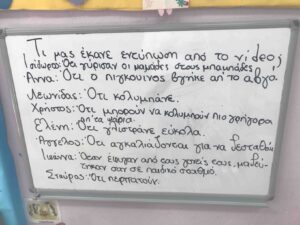 Τι μας έκανε εντύπωση από το video;
Ισίδωρος: Ότι γύρισαν οι μαμάδες στους μπαμπάδες.
Άννα: Ότι ο πιγκουίνος βγήκε απ' το αυγό.
Λεωνίδας: Ότι κολυμπάνε.
Χρήστος: Ότι μπορούν να κολυμπούν πιο γρήγορα
απ' τα ψάρια.
Ελένη: Ότι γλιστράνε εύκολα.
Άγγελος: Ότι αγκαλιάζονται για να ζεσταθούν
Ιωάννα: Όταν έφυγαν από τους γονείς τους, μαζεύ-
τηκαν σαν σε παιδικό σταθμό.
Σταύρος: Ότι περπατούν.